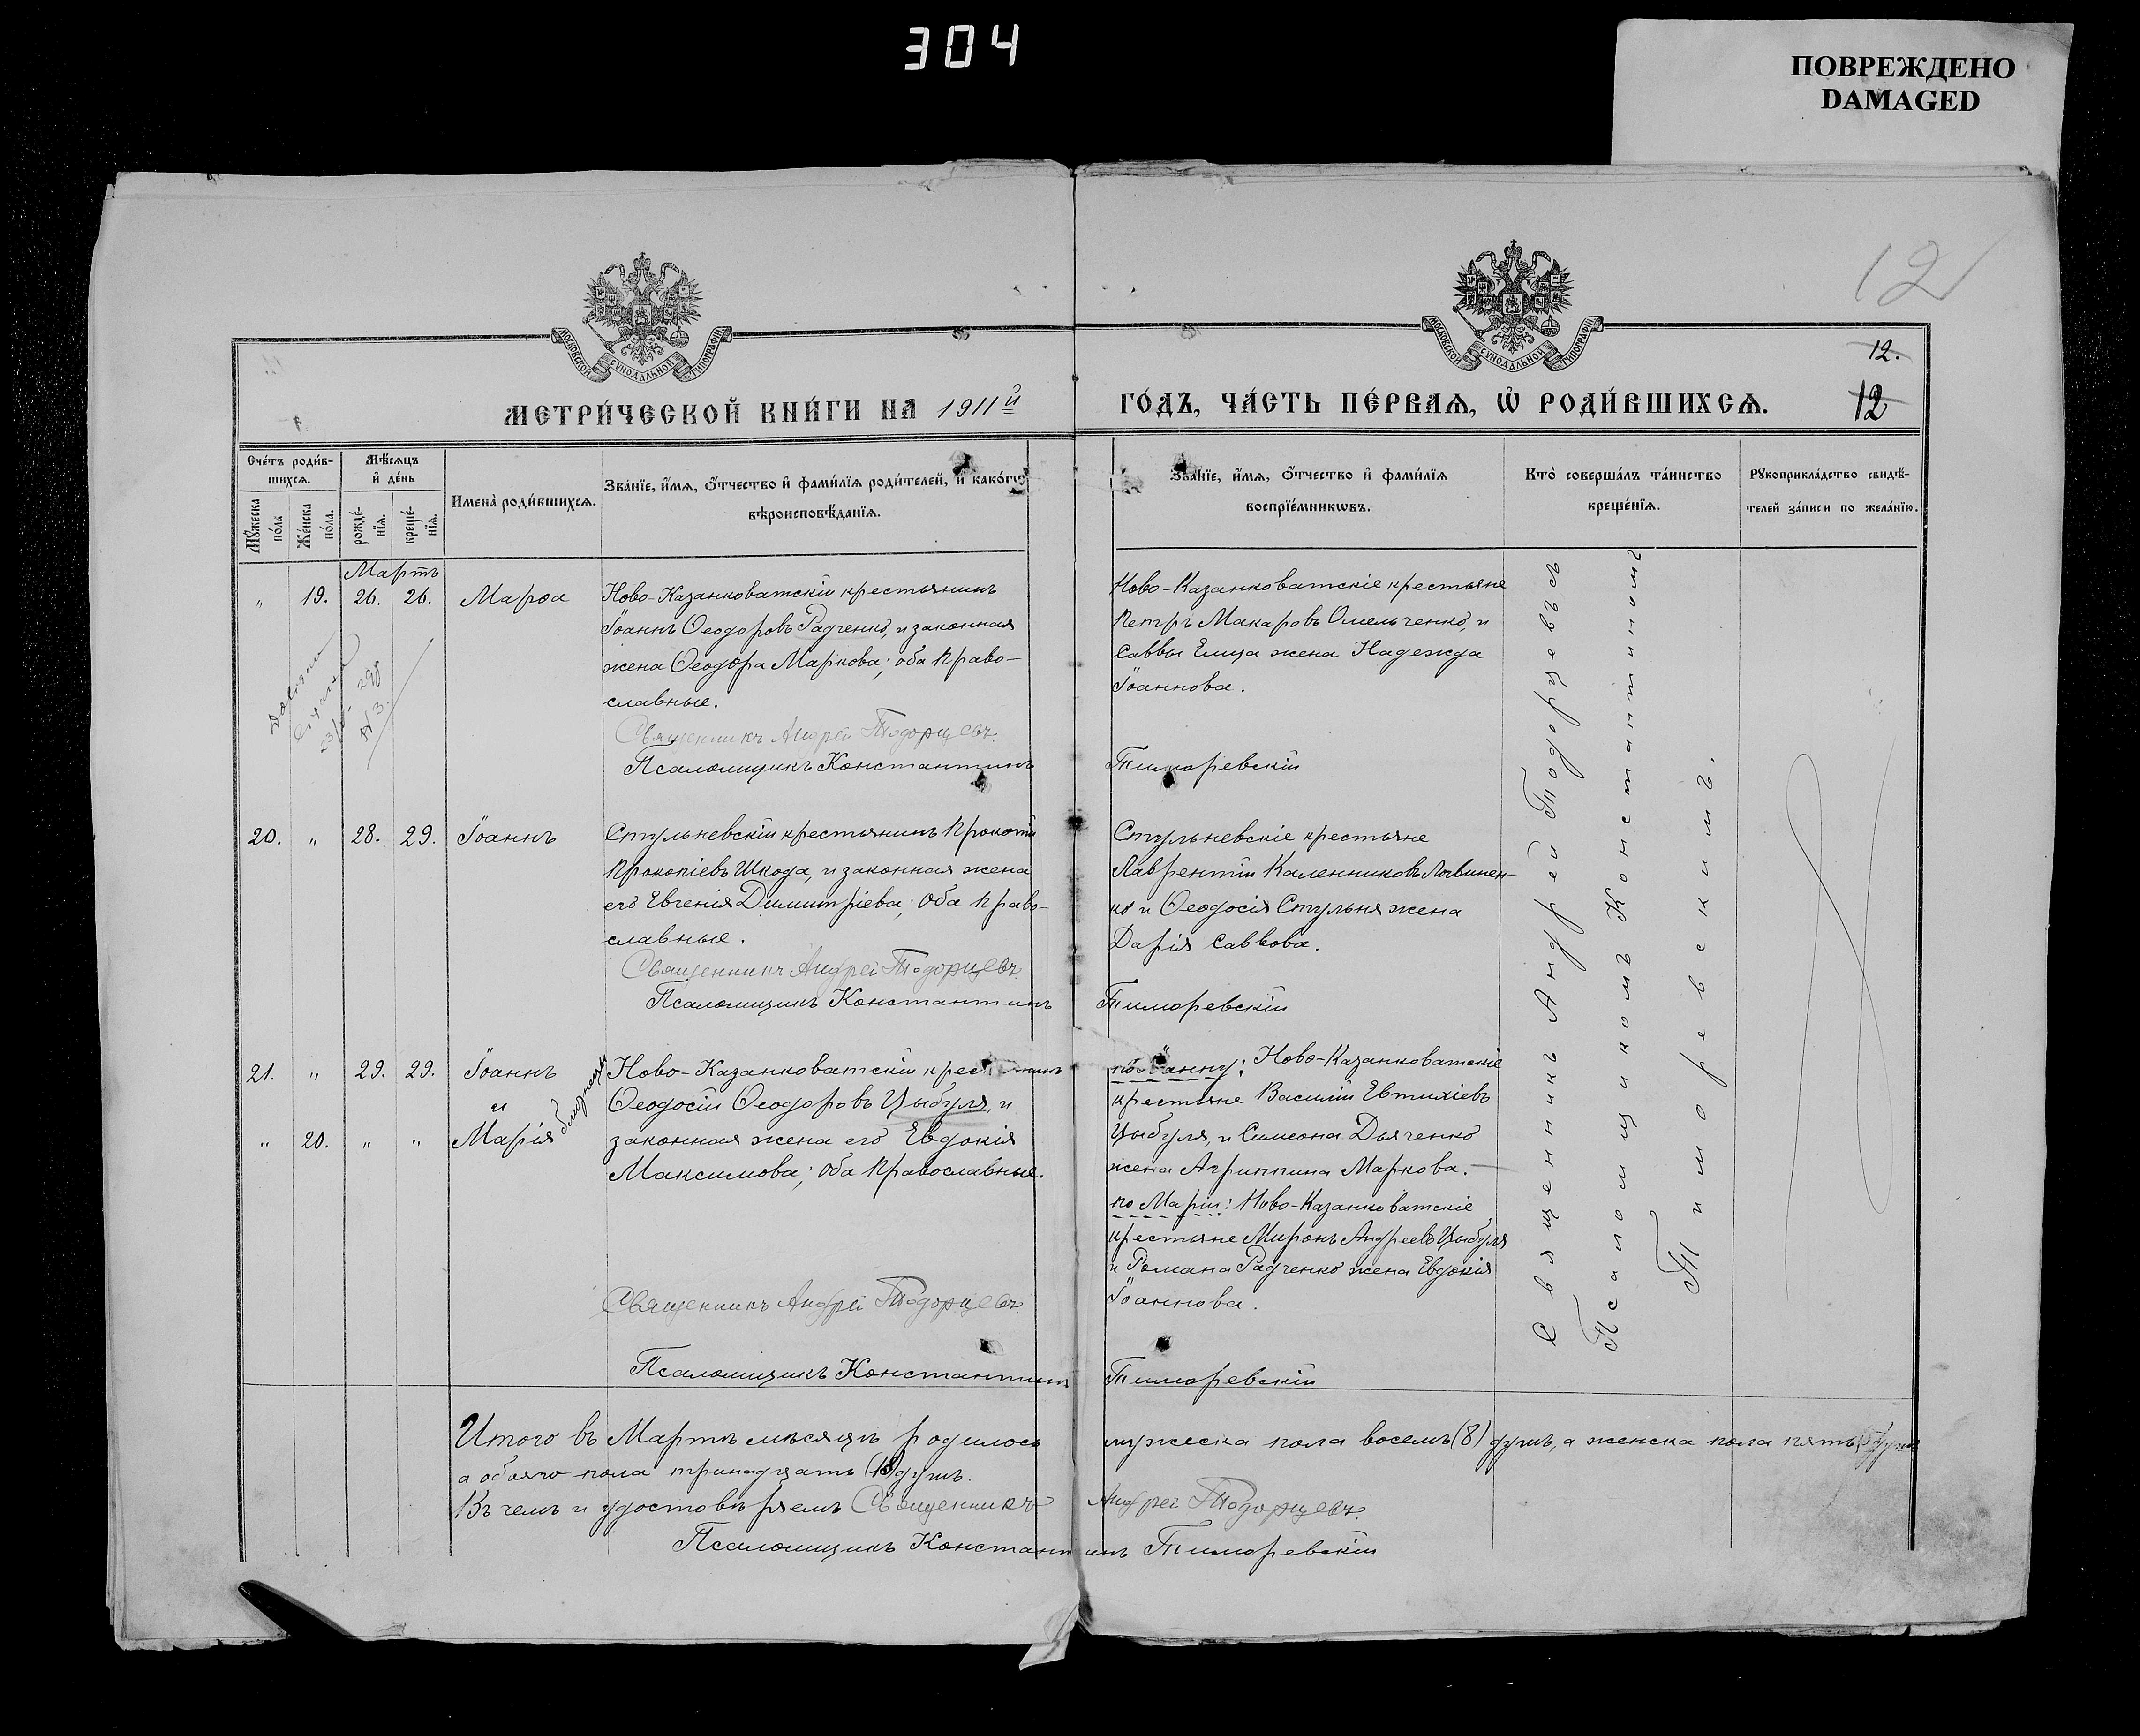 304
ПОВРЕЖДЕНО
DAMAGED
12
12.
12
МОСКОВСКОЙ СѴНОДАЛЬНОЙ ТИПОГРАФІИ
МОСКОВСКОЙ СѴНОДАЛЬНОЙ ТИПОГРАФІИ
МЕТРИ́ЧЕСКОЙ КНИ́ГИ НА 1911й
ГО́ДЪ, ЧА́СТЬ ПЕ́РВАѦ, Ѡ҆ РОДИ́ВШИХСѦ.
Сче́тъ роди́в-
шихсѧ.
Мꙋ́жеска по́ла
Же́нска по́ла.
Мѣ́сѧцъ
и҆ де́нь
рожде́-
нїѧ.
креще́-
нїѧ.
Имена̀ роди́вшихсѧ.
Зва́нїе, и҆́мѧ, ѻ҆́тчество и҆ фами́лїѧ роди́телей, и҆ како́гѡ
вѣроисповѣ́данїѧ.
Зва́нїе, и҆́мѧ, ѻ҆́тчество и҆ фами́лїѧ
воспрїе́мникѡвъ.
Кто̀ соверша́лъ та́инство
креще́нїѧ.
Рꙋкоприкла́дство свидѣ́-
телей за́писи по жела́нїю.
Мартъ
" 19. 26. 26. Марѳа
Ново-Казанковатскій крестьянинъ
Іоаннъ Ѳеодоровъ Радченко, и законная
жена Ѳеодора Маркова; оба право-
славные.
Священникъ Андрей Тодорцевъ.
Псаломщикъ Константинъ
Ново-Казанковатскіе крестьяне
Петръ Макаровъ Омельченко, и
Саввы Емца жена Надежда
Іоаннова.
Тиморевскій
20. " 28. 29. Іоаннъ
Стульневскій крестьянинъ Прокопій
Прокопіевъ Шкода, и законная жена
его Евгенія Димитріева; оба право-
славные.
Священникъ Андрей Тодорцевъ.
Псаломщикъ Константинъ
Стульневскіе крестьяне
Лаврентій Каленниковъ Логвинен-
ко и Ѳеодосія Стульня жена
Дарія Саввова.
Тиморевскій
21. " 29. 29. Іоаннъ
и
" 20. " " Марія
близнецы
Ново-Казанковатскій крестьянинъ
Ѳеодосій Ѳеодоровъ Цыбуля, и
законная жена его Евдокія
Максимова; оба православные.
Священникъ Андрей Тодорцевъ.
Псаломщикъ Константинъ
по Іоанну: Ново-Казанковатскіе
крестьяне Василій Евтихіевъ
Цыбуля, и Симеона Дьяченко
жена Агриппина Маркова.
по Маріи: Ново-Казанковатскіе
крестьяне Миронъ Андреевъ Цыбуля
и Романа Радченко жена Евдокія
Іоаннова.
Тиморевскій
Священникъ Андрей Тодорцевъ съ
Псаломщикомъ Константиномъ
Тиморевскимъ.
Итого въ Мартѣ мѣсяцѣ родилось мужеска пола восемь (8) душъ, а женска пола пять (5) душъ
а обоего пола тринадцать (13) душъ.
Въ чемъ и удостовѣряемъ Священникъ Андрей Тодорцевъ.
Псаломщикъ Константинъ Тиморевскій